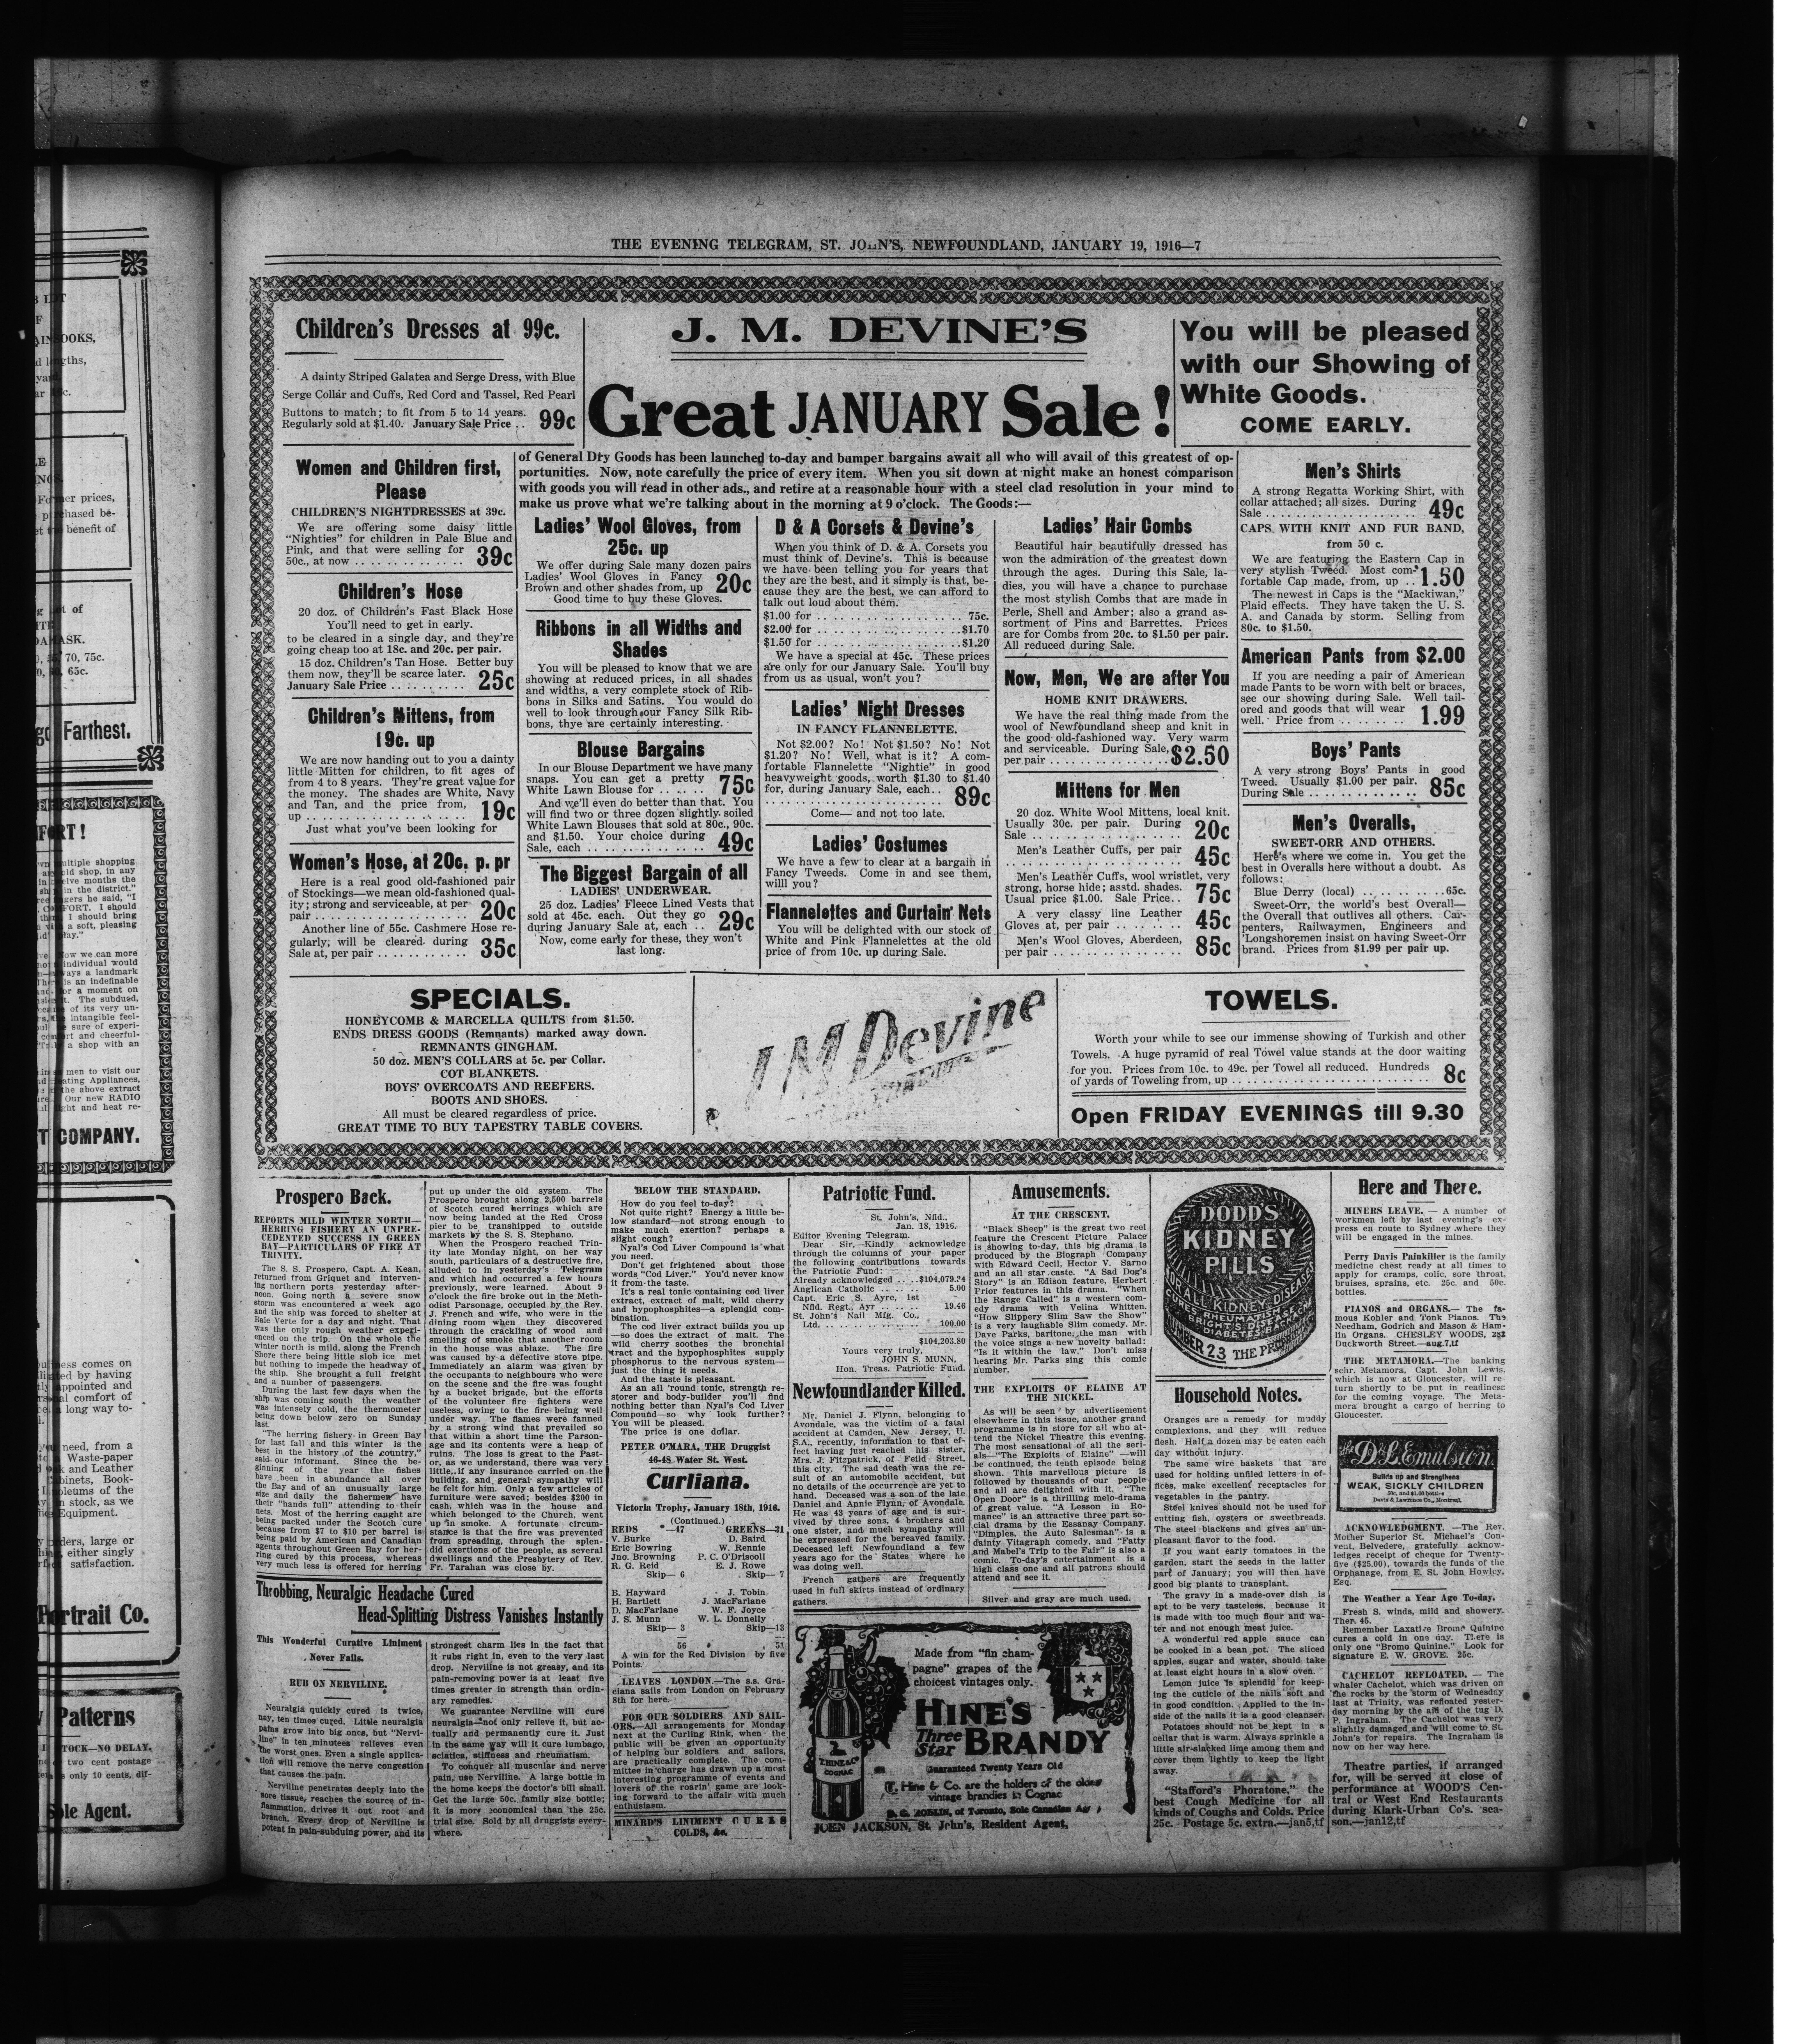 THE EVENING TELEGRAM, ST. JOHN'S, NEWFOUNDLAND, JANUARY 19, 1916—7
Children's Dresses at 99c.
A dainty Striped Galatea and Serge Dress, with Blue
Serge Collar and Cuffs, Red Cord and Tassel, Red Pearl
Buttons to match; to fit from 5 to 14 years.
Regularly sold at $1.40. January Sale Price .. 99c
J. M. DEVINE'S
Great JANUARY Sale!
You will be pleased
with our Showing of
White Goods.
COME EARLY.
of General Dry Goods has been launched to-day and bumper bargains await all who will avail of this greatest of op-
portunities. Now, note carefully the price of every item. When you sit down at night make an honest comparison
with goods you will read in other ads., and retire at a reasonable hour with a steel clad resolution in your mind to
make us prove what we're talking about in the morning at 9 o'clock. The Goods:—
Women and Children first,
Please
CHILDREN'S NIGHTDRESSES at 39c.
We are offering some daisy little
"Nighties" for children in Pale Blue and
Pink, and that were selling for
50c., at now .............. 39c
Children's Hose
20 doz. of Children's Fast Black Hose
You'll need to get in early.
to be cleared in a single day, and they're
going cheap too at 18c. and 20c. per pair.
15 doz. Children's Tan Hose. Better buy
them now, they'll be scarce later.
January Sale Price .......... 25c
Children's Mittens, from
19c. up
We are now handing out to you a dainty
little Mitten for children, to fit ages of
from 4 to 8 years. They're great value for
the money. The shades are White, Navy
and Tan, and the price from,
up ................. 19c
Just what you've been looking for
Women's Hose, at 20c. p. pr
Here is a real good old-fashioned pair
of Stockings—we mean old-fashioned qual-
ity; strong and serviceable, at per
pair ................ 20c
Another line of 55c. Cashmere Hose re-
gularly, will be cleared during
Sale at, per pair ............ 35c
Ladies' Wool Gloves, from
25c. up
We offer during Sale many dozen pairs
Ladies' Wool Gloves in Fancy
Brown and other shades from, up 20c
Good time to buy these Gloves.
Ribbons in all Widths and
Shades
You will be pleased to know that we are
showing at reduced prices, in all shades
and widths, a very complete stock of Rib-
bons in Silks and Satins. You would do
well to look through our Fancy Silk Rib-
bons, thye are certainly interesting.
Blouse Bargains
In our Blouse Department we have many
snaps. You can get a pretty
White Lawn Blouse for ...... 75c
And we'll even do better than that. You
will find two or three dozen slightly soiled
White Lawn Blouses that sold at 80c., 90c.
and $1.50. Your choice during
Sale, each .............. 49c
The Biggest Bargain of all
LADIES' UNDERWEAR.
25 doz. Ladies' Fleece Lined Vests that
sold at 45c. each. Out they go
during January Sale at, each .. 29c
Now, come early for these, they won't
last long.
D & A Corsets & Devine's
When you think of D. & A. Corsets you
must think of Devine's. This is because
we have been telling you for years that
they are the best, and it simply is that, be-
cause they are the best, we can afford to
talk out loud about them.
$1.00 for .................. 75c.
$2.00 for ..................$1.70
$1.50 for ..................$1.20
We have a special at 45c. These prices
are only for our January Sale. You'll buy
from us as usual, won't you?
Ladies' Night Dresses
IN FANCY FLANNELETTE.
Not $2.00? No! Not $1.50? No! Not
$1.20? No! Well, what is it? A com-
fortable Flannelette "Nightie" in good
heavyweight goods, worth $1.30 to $1.40
for, during January Sale, each..
.................... 89c
Come— and not too late.
Ladies' Costumes
We have a few to clear at a bargain in
Fancy Tweeds. Come in and see them,
willl you?
Flannelettes and Curtain Nets
You will be delighted with our stock of
White and Pink Flannelettes at the old
price of from 10c. up during Sale.
Ladies' Hair Combs
Beautiful hair beautifully dressed has
won the admiration of the greatest down
through the ages. During this Sale, la-
dies, you will have a chance to purchase
the most stylish Combs that are made in
Perle, Shell and Amber; also a grand as-
sortment of Pins and Barrettes. Prices
are for Combs from 20c. to $1.50 per pair.
All reduced during Sale.
Now, Men, We are after You
HOME KNIT DRAWERS.
We have the real thing made from the
wool of Newfoundland sheep and knit in
the good old-fashioned way. Very warm
and serviceable. During Sale,
per pair .............. $2.50
Mittens for Men
20 doz. White Wool Mittens, local knit.
Usually 30c. per pair. During
Sale .................. 20c
Men's Leather Cuffs, per pair
.................... 45c
Men's Leather Cuffs, wool wristlet, very
strong, horse hide; asstd. shades.
Usual price $1.00. Sale Price.. 75c
A very classy line Leather
Gloves at, per pair ........ 45c
Men's Wool Gloves, Aberdeen,
per pair ................ 85c
Men's Shirts
A strong Regatta Working Shirt, with
collar attached; all sizes. During
Sale .................. 49c
CAPS WITH KNIT AND FUR BAND,
from 50 c.
We are featuring the Eastern Cap in
very stylish Tweed. Most com-
fortable Cap made, from, up .. 1.50
The newest in Caps is the "Mackiwan,"
Plaid effects. They have taken the U. S.
A. and Canada by storm. Selling from
80c. to $1.50.
American Pants from $2.00
If you are needing a pair of American
made Pants to be worn with belt or braces,
see our showing during Sale. Well tail-
ored and goods that will wear
well. Price from ........ 1.99
Boys' Pants
A very strong Boys' Pants in good
Tweed. Usually $1.00 per pair.
During Sale .............. 85c
Men's Overalls,
SWEET-ORR AND OTHERS.
Here's where we come in. You get the
best in Overalls here without a doubt. As
follows:
Blue Derry (local) ..........65c.
Sweet-Orr, the world's best Overall—
the Overall that outlives all others. Car-
penters, Railwaymen, Engineers and
'Longshoremen insist on having Sweet-Orr
brand. Prices from $1.99 per pair up.
SPECIALS.
HONEYCOMB & MARCELLA QUILTS from $1.50.
ENDS DRESS GOODS (Remnants) marked away down.
REMNANTS GINGHAM.
50 doz. MEN'S COLLARS at 5c. per Collar.
COT BLANKETS.
BOYS' OVERCOATS AND REEFERS.
BOOTS AND SHOES.
All must be cleared regardless of price.
GREAT TIME TO BUY TAPESTRY TABLE COVERS.
J M Devine
TOWELS.
Worth your while to see our immense showing of Turkish and other
Towels. A huge pyramid of real Towel value stands at the door waiting
for you. Prices from 10c. to 49c. per Towel all reduced. Hundreds
of yards of Toweling from, up .......................... 8c
Open FRIDAY EVENINGS till 9.30
Prospero Back.
REPORTS MILD WINTER NORTH—
HERRING FISHERY AN UNPRE-
CEDENTED SUCCESS IN GREEN
BAY—PARTICULARS OF FIRE AT
TRINITY.
The S. S. Prospero, Capt. A. Kean,
returned from Griquet and interven-
ing northern ports yesterday after-
noon. Going north a severe snow
storm was encountered a week ago
and the ship was forced to shelter at
Baie Verte for a day and night. That
was the only rough weather experi-
enced on the trip. On the whole the
winter north is mild, along the French
Shore there being little slob ice met
but nothing to impede the headway of
the ship. She brought a full freight
and a number of passengers.
During the last few days when the
ship was coming south the weather
was intensely cold, the thermometer
being down below zero on Sunday
last.
"The herring fishery in Green Bay
for last fall and this winter is the
best in the history of the country,"
said our informant. Since the be-
ginning of the year the fishes
have been in abundance all over
the Bay and of an unusually large
size and daily the fishermen have
their "hands full" attending to their
nets. Most of the herring caught are
being packed under the Scotch cure
because from $7 to $10 per barrel is
being paid by American and Canadian
agents throughout Green Bay for her-
ring cured by this process, whereas
very much less is offered for herring
put up under the old system. The
Prospero brought along 2,500 barrels
of Scotch cured herrings which are
now being landed at the Red Cross
pier to be transhipped to outside
markets by the S. S. Stephano.
When the Prospero reached Trin-
ity late Monday night, on her way
south, particulars of a destructive fire,
alluded to in yesterday's Telegram
and which had occurred a few hours
previously, were learned. About 9
o'clock the fire broke out in the Meth-
odist Parsonage, occupied by the Rev.
J. French and wife, who were in the
dining room when they discovered
through the crackling of wood and
smelling of smoke that another room
in the house was ablaze. The fire
was caused by a defective stove pipe.
Immediately an alarm was given by
the occupants to neighbours who were
on the scene and the fire was fought
by a bucket brigade, but the efforts
of the volunteer fire fighters were
useless, owing to the fire being well
under way. The flames were fanned
by a strong wind that prevailed so
that within a short time the Parson-
age and its contents were a heap of
ruins. The loss is great to the Past-
or, as we understand, there was very
little, if any insurance carried on the
building, and general sympathy will
be felt for him. Only a few articles of
furniture were saved; besides $200 in
cash, which was in the house and
which belonged to the Church, went
up in smoke. A fortunate circum-
stance is that the fire was prevented
from spreading, through the splen-
did exertions of the people, as several
dwellings and the Presbytery of Rev.
Fr. Tarahan was close by.
Throbbing, Neuralgic Headache Cured
Head-Splitting Distress Vanishes Instantly
This Wonderful Curative Liniment
Never Fails.
RUB ON NERVILINE.
Neuralgia quickly cured is twice,
nay, ten times cured. Little neuralgia
pains grow into big ones, but "Nervi-
line" in ten minutes relieves even
the worst ones. Even a single applica-
tion will remove the nerve congestion
that causes the pain.
Nerviline penetrates deeply into the
sore tissue, reaches the source of in-
flammation, drives it out root and
branch. Every drop of Nerviline is
potent in pain-subduing power, and its
strongest charm lies in the fact that
it rubs right in, even to the very last
drop. Nerviline is not greasy, and its
pain-removing power is at least five
times greater in strength than ordin-
ary remedies.
We guarantee Nerviline will cure
neuralgia—not only relieve it, but ac-
tually and permanently cure it. Just
in the same way will it cure lumbago,
sciatica, stiffness and rheumatism.
To conquer all muscular and nerve
pain, use Nerviline. A large bottle in
the home keeps the doctor's bill small.
Get the large 50c. family size bottle;
it is more economical than the 25c.
trial size. Sold by all druggists every-
where.
BELOW THE STANDARD.
How do you feel to-day?
Not quite right? Energy a little be-
low standard—not strong enough to
make much exertion? perhaps a
slight cough?
Nyal's Cod Liver Compound is what
you need.
Don't get frightened about those
words "Cod Liver." You'd never know
it from the taste.
It's a real tonic containing cod liver
extract, extract of malt, wild cherry
and hypophosphites—a splendid com-
bination.
The cod liver extract builds you up
—so does the extract of malt. The
wild cherry soothes the bronchial
tract and the hypophosphites supply
phosphorus to the nervous system—
just the thing it needs.
And the taste is pleasant.
As an all 'round tonic, strength re-
storer and body-builder you'll find
nothing better than Nyal's Cod Liver
Compound—so why look further?
You will be pleased.
The price is one dollar.
PETER O'MARA, THE Druggist
46-48 Water St. West.
Curliana.
Victoria Trophy, January 18th, 1916.
(Continued.)
REDS —47 GREENS—31
V. Burke D. Baird
Eric Bowring W. Rennie
Jno. Browning P. C. O'Driscoll
R. G. Reid E. J. Rowe
Skip— 6 Skip— 7
B. Hayward J. Tobin
H. Bartlett J. MacFarlane
D. MacFarlane W. F. Joyce
J. S. Munn W. L. Donnelly
Skip— 3 Skip—13
56 51
A win for the Red Division by five
Points.
LEAVES LONDON.—The s.s. Gra-
ciana sails from London on February
8th for here.
FOR OUR SOLDIERS AND SAIL-
ORS.—All arrangements for Monday
next at the Curling Rink, when the
public will be given an opportunity
of helping our soldiers and sailors,
are practically complete. The com-
mittee in charge has drawn up a most
interesting programme of events and
lovers of the roarin' game are look-
ing forward to the affair with much
enthusiasm.
MINARD'S LINIMENT CURES
COLDS, &c.
Patriotic Fund.
St. John's, Nfld.,
Jan. 18, 1916.
Editor Evening Telegram.
Dear Sir,—Kindly acknowledge
through the columns of your paper
the following contributions towards
the Patriotic Fund:
Already acknowledged ....$104,079.34
Anglican Catholic ...... 5.00
Capt. Eric S. Ayre, 1st
Nfld. Regt., Ayr ...... 19.46
St. John's Nail Mfg. Co.,
Ltd. ................ 100.00
$104,203.80
Yours very truly,
JOHN S. MUNN,
Hon. Treas. Patriotic Fund.
Newfoundlander Killed.
Mr. Daniel J. Flynn, belonging to
Avondale, was the victim of a fatal
accident at Camden, New Jersey, U.
S.A., recently, information to that ef-
fect having just reached his sister,
Mrs. J. Fitzpatrick, of Feild Street,
this city. The sad death was the re-
sult of an automobile accident, but
no details of the occurrence are yet to
hand. Deceased was a son of the late
Daniel and Annie Flynn, of Avondale.
He was 43 years of age and is sur-
vived by three sons, 4 brothers and
one sister, and much sympathy will
be expressed for the bereaved family.
Deceased left Newfoundland a few
years ago for the States where he
was doing well.
French gathers are frequently
used in full skirts instead of ordinary
gathers.
Amusements.
AT THE CRESCENT.
"Black Sheep" is the great two reel
feature the Crescent Picture Palace
is showing to-day, this big drama is
produced by the Biograph Company
with Edward Cecil, Hector V. Sarno
and an all star caste. "A Sad Dog's
Story" is an Edison feature, Herbert
Prior features in this drama. "When
the Range Called" is a western com-
edy drama with Velina Whitten.
"How Slippery Slim Saw the Show"
is a very laughable Slim comedy. Mr.
Dave Parks, baritone, the man with
the voice sings a new novelty ballad:
"Is it within the law." Don't miss
hearing Mr. Parks sing this comic
number.
THE EXPLOITS OF ELAINE AT
THE NICKEL.
As will be seen by advertisement
elsewhere in this issue, another grand
programme is in store for all who at-
tend the Nickel Theatre this evening.
The most sensational of all the seri-
als—"The Exploits of Elaine" —will
be continued, the tenth episode being
shown. This marvellous picture is
followed by thousands of our people
and all are delighted with it. "The
Open Door" is a thrilling melo-drama
of great value. "A Lesson in Ro-
mance" is an attractive three part so-
cial drama by the Essanay Company.
"Dimples, the Auto Salesman" is a
dainty Vitagraph comedy, and "Fatty
and Mabel's Trip to the Fair" is also a
comic. To-day's entertainment is a
high class one and all patrons should
attend and see it.
Silver and gray are much used.
Made from "fin cham-
pagne" grapes of the
choicest vintages only.
HINE'S
Three
Star BRANDY
Guaranteed Twenty Years Old
T. Hine & Co. are the holders of the oldest
vintage brandies in Cognac
D. O. ROBLIN, of Toronto, Sole Canadian Agt
JOHN JACKSON, St. John's, Resident Agent.
T. HINE & CO
COGNAC
DODD'S
KIDNEY
PILLS
FOR ALL KIDNEY DISEASES
CURES RHEUMATISM
BRIGHT'S DISEASE
DIABETES BACKACHE
NUMBER 23 THE PROPRIETARY
Household Notes.
Oranges are a remedy for muddy
complexions, and they will reduce
flesh. Half a dozen may be eaten each
day without injury.
The same wire baskets that are
used for holding unfiled letters in of-
fices, make excellent receptacles for
vegetables in the pantry.
Steel knives should not be used for
cutting fish, oysters or sweetbreads.
The steel blackens and gives an un-
pleasant flavor to the food.
If you want early tomatoes in the
garden, start the seeds in the latter
part of January; you will then have
good big plants to transplant.
The gravy in a made-over dish is
apt to be very tasteless, because it
is made with too much flour and wa-
ter and not enough meat juice.
A wonderful red apple sauce can
be cooked in a bean pot. The sliced
apples, sugar and water, should take
at least eight hours in a slow oven.
Lemon juice is splendid for keep-
ing the cuticle of the nails soft and
in good condition. Applied to the in-
side of the nails it is a good cleanser.
Potatoes should not be kept in a
cellar that is warm. Always sprinkle a
little air-slacked lime among them and
cover them lightly to keep the light
away.
"Stafford's Phoratone," the
best Cough Medicine for all
kinds of Coughs and Colds. Price
25c. Postage 5c. extra.—jan5,tf
Here and There.
MINERS LEAVE. — A number of
workmen left by last evening's ex-
press en route to Sydney where they
will be engaged in the mines.
Perry Davis Painkiller is the family
medicine chest ready at all times to
apply for cramps, colic, sore throat,
bruises, sprains, etc. 25c. and 50c.
bottles.
PIANOS and ORGANS.— The fa-
mous Kohler and Tonk Pianos. The
Needham, Godrich and Mason & Ham-
lin Organs. CHESLEY WOODS, 282
Duckworth Street.—aug.7,tf
THE METAMORA.—The banking
schr. Metamora, Capt. John Lewis,
which is now at Gloucester, will re
turn shortly to be put in readiness
for the coming voyage. The Meta-
mora brought a cargo of herring to
Gloucester.
The D&L Emulsion
Builds up and Strengthens
WEAK, SICKLY CHILDREN
50c. and $1.00 bottles
Davis & Lawrence Co., Montreal.
ACKNOWLEDGMENT. —The Rev.
Mother Superior St. Michael's Con-
vent, Belvedere, gratefully acknow-
ledges receipt of cheque for Twenty-
five ($25.00), towards the funds of the
Orphanage, from E. St. John Howley,
Esq.
The Weather a Year Ago To-day.
Fresh S. winds, mild and showery.
Ther. 45.
Remember Laxative Bromo Quinine
cures a cold in one day. There is
only one "Bromo Quinine." Look for
signature E. W. GROVE. 25c.
CACHELOT REFLOATED. — The
whaler Cachelot, which was driven on
the rocks by the storm of Wednesday
last at Trinity, was refloated yester-
day morning by the aid of the tug D.
P. Ingraham. The Cachelot was very
slightly damaged and will come to St.
John's for repairs. The Ingraham is
now on her way here.
Theatre parties, if arranged
for, will be served at close of
performance at WOOD'S Cen-
tral or West End Restaurants
during Klark-Urban Co's. sea-
son.—jan12,tf